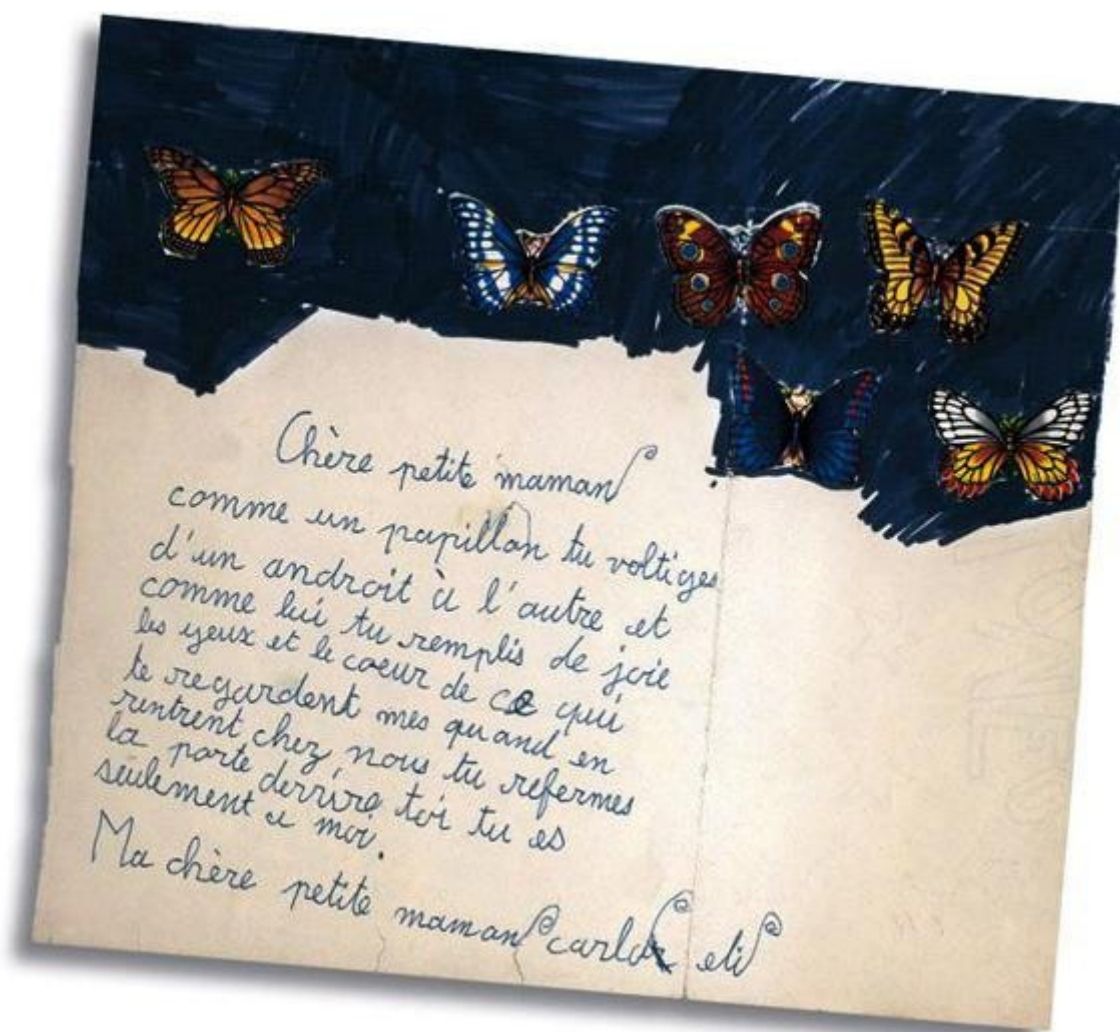 Chère petite maman
comme un papillon tu voltiges
d'un androit à l'autre et
comme lui tu remplis de joie
les yeux et le coeur de ce qui
te regardent mes quand en
rentrent chez nous tu refermes
la porte derrire toi tu es
seulement a moi.
Ma chère petite maman carlo eli